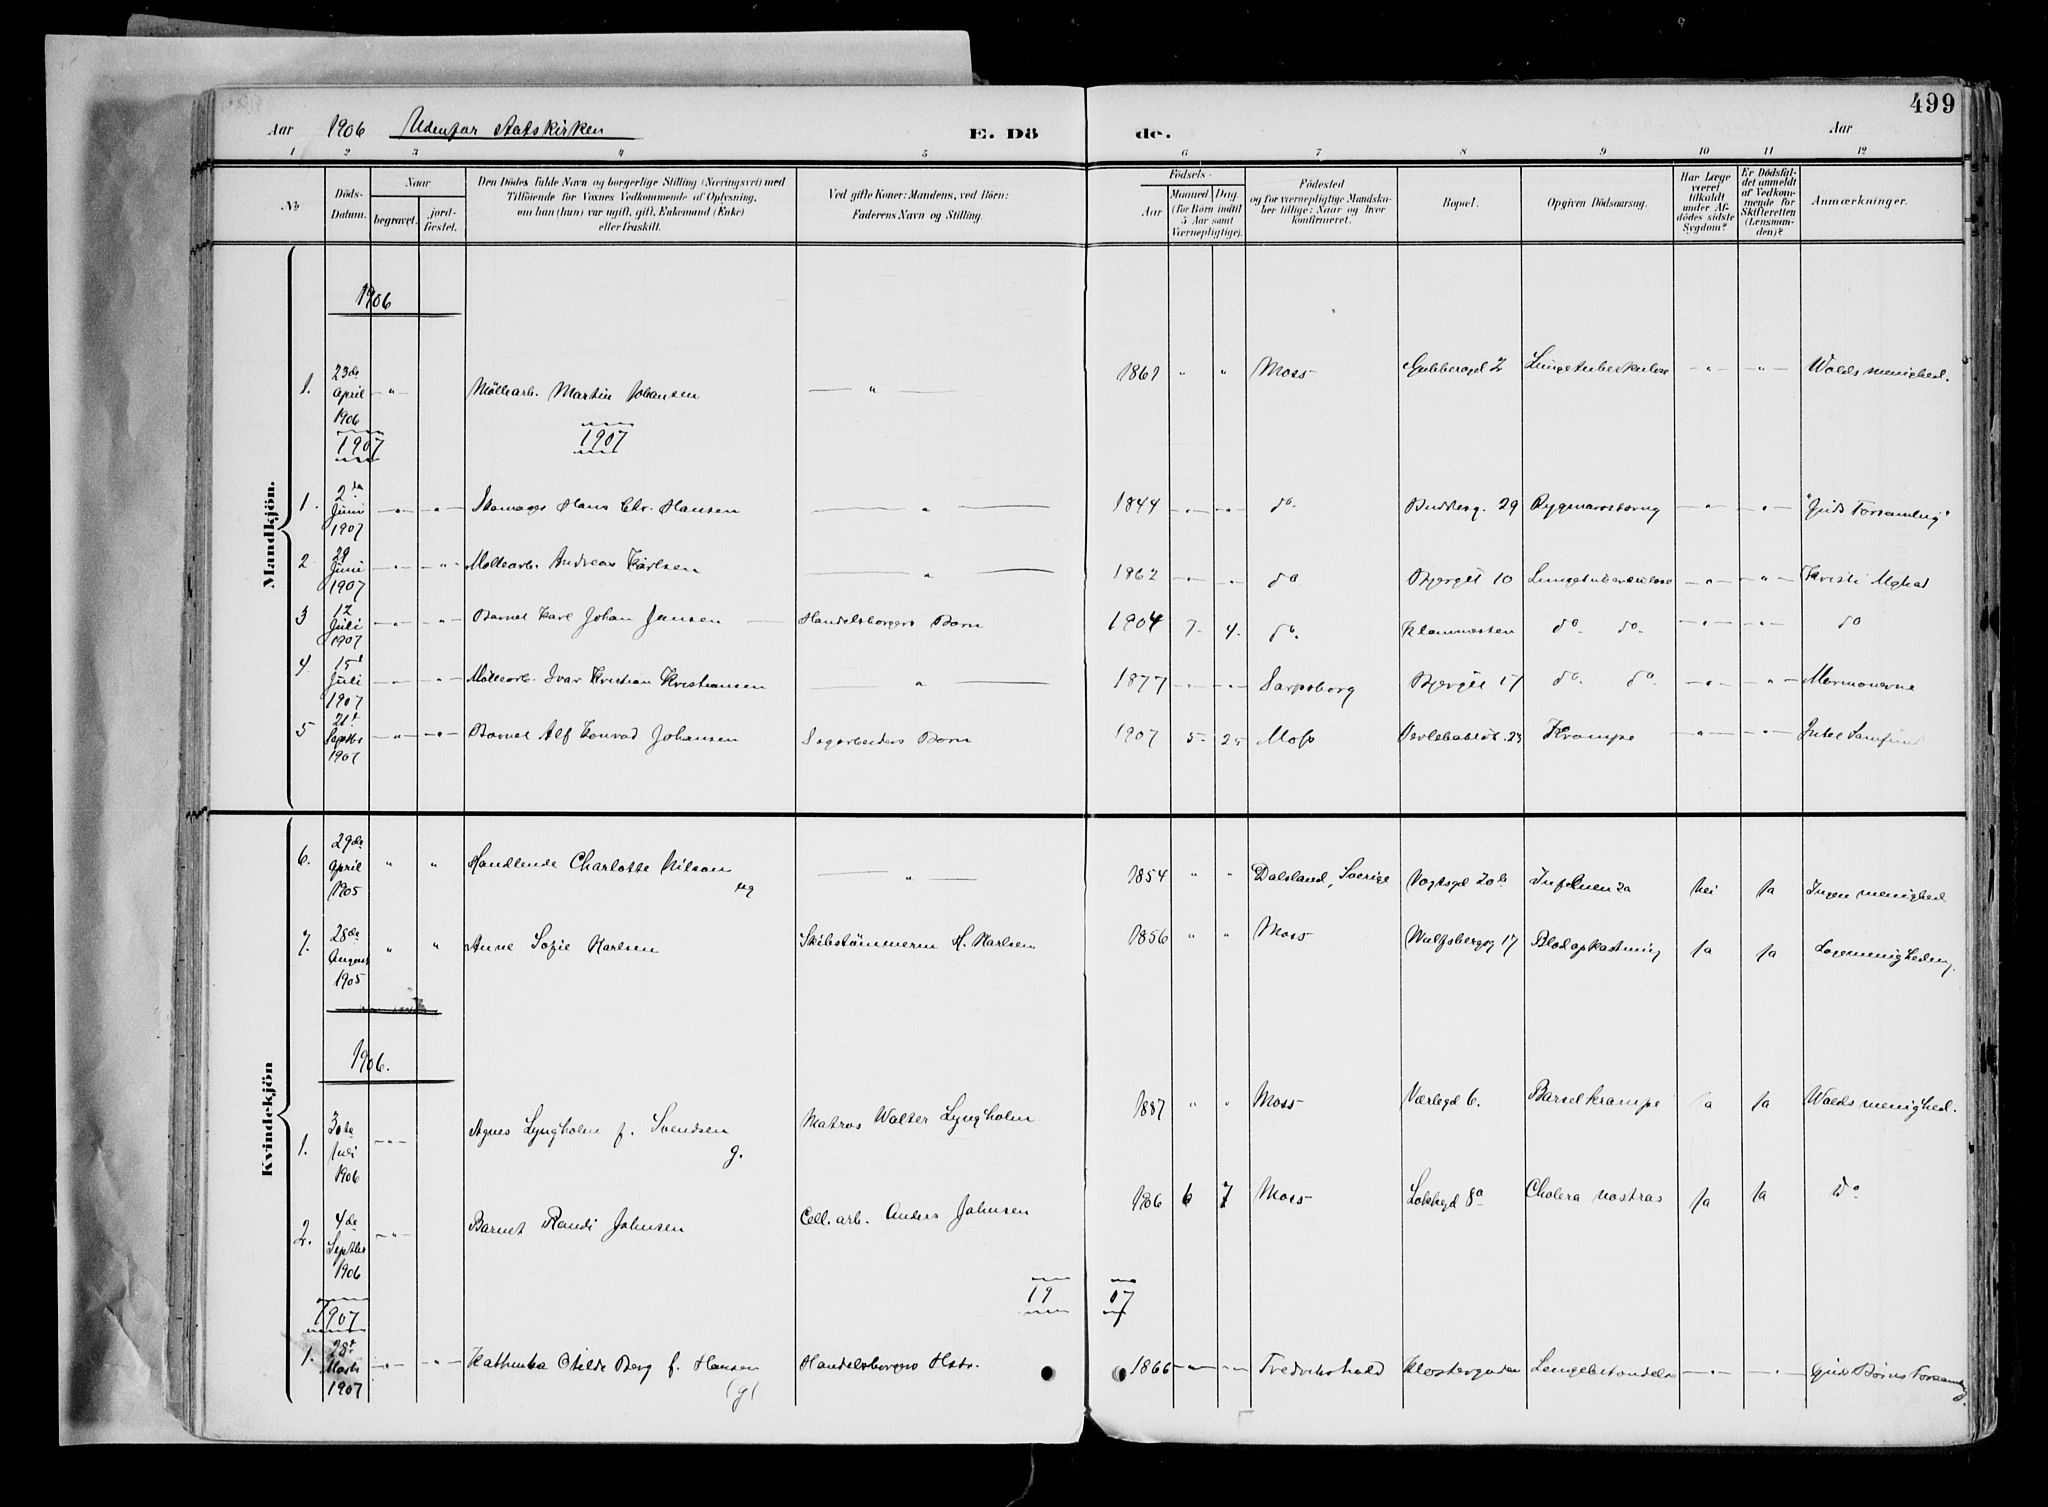 499
Aar 1906 Udenfor Statskirken E. Dö de. Aar
1 2 3 4 5 6 7 8 9 10 11 12
No. Döds-Datum. Naar begravet. jord-fæstet. Den Dödes fulde Navn og borgerlige Stilling (Næringsvei) med Tilföiende for Voxnes Vedkommende af Oplysning, om han (hun) var ugift, gift, Enkemand (Enke) eller fraskilt. Ved gifte Koner: Mandens, ved Börn: Faderens Navn og Stilling. Födsels- Aar Maaned Dag (for Börn indtil 5 Aar samt Værnepligtige). Födested og for værnepligtige Mandskaber tillige: Naar og hvor konfirmeret. Bopæl. Opgiven Dödsaarsag. Har Læge været tilkaldt under Afdödes sidste Sygdom? Er Dödsfaldet anmeldt af Vedkommende for Skifteretten (Lensmanden)? Anmærkninger.
Mandkjön.
1906
1. 23de April 1906 — " — Møllearb. Martin Johansen — " — 1861 " " Moss Gubberogd 2 Lungetuberkulose — " — — " — Walds menighed.
1907 1907
1. 2den Juni 1907 — " — — " — Skomager Hans Chr. Hansen — " — 1844 — " — — " — do. Budberg. 29 Rygmarvstæring — " — — " — "Guds Forsamling"
2 29 Juni 1907 — " — — " — Møllearb. Andreas Karlsen — " — 1862 — " — — " — do Bjerget 10 Lungetuberculose — " — — " — Kristi Mghed
3 12 Juli 1907 — " — — " — Barnet Karl Johan Jensen — Handelsborgers Barn 1904 7. 4. do. Klommesten do. do. — " — — " — do
4 15d Juli 1907 — " — — " — Møllearb. Ivar Kristian Kristiansen — " — 1877 — " — — " — Sarpsborg Bjerget 17 do. do. — " — — " — Mormonerne
5 21d Septbr 1907 — " — — " — Barnet Alf Konrad Johansen Sagarbeiders Barn 1907 5 25 Moss 25 Krampe — " — — " — Intet Samfund
Kvindekjön
6. 29de April 1905 " " Handlende Charlotte Nilson ug — " — 1854 " " Dalsland, Sverige Vogtsgd 20b Influenza Nei Ja Ingen menighed
7. 28de August 1905 " " Anne Sofie Karlsen Skibstømmerm H. Karlsen 1856 " " Moss Wulfsbergsg 17 Blodopkastning Ja Ja Lagemenigheden
1906.
1. 30te Juli 1906 — " — Agnes Lyngholm f. Svendsen g. Matros Walter Lyngholm 1887 " " Moss Værlegd 6. Barselkrampe Ja Ja Walds menighed.
2. 4de Septber 1906 — " — Barnet Randi Johnsen Cell. arb. Anders Johnsen 1906 6 7 Moss Lokkegd 8a Cholera nostras Ja Ja Do
1907 19 07
1. 28d Marts 1907 — " — — " — Kathinka Otilde Berg f. Hansen (g) Handelsborgers Hstr. 1866 — " — — " — Fredrikshald Klostergaden Lungebetændelse — " — — " — Guds Børns Forsamling.